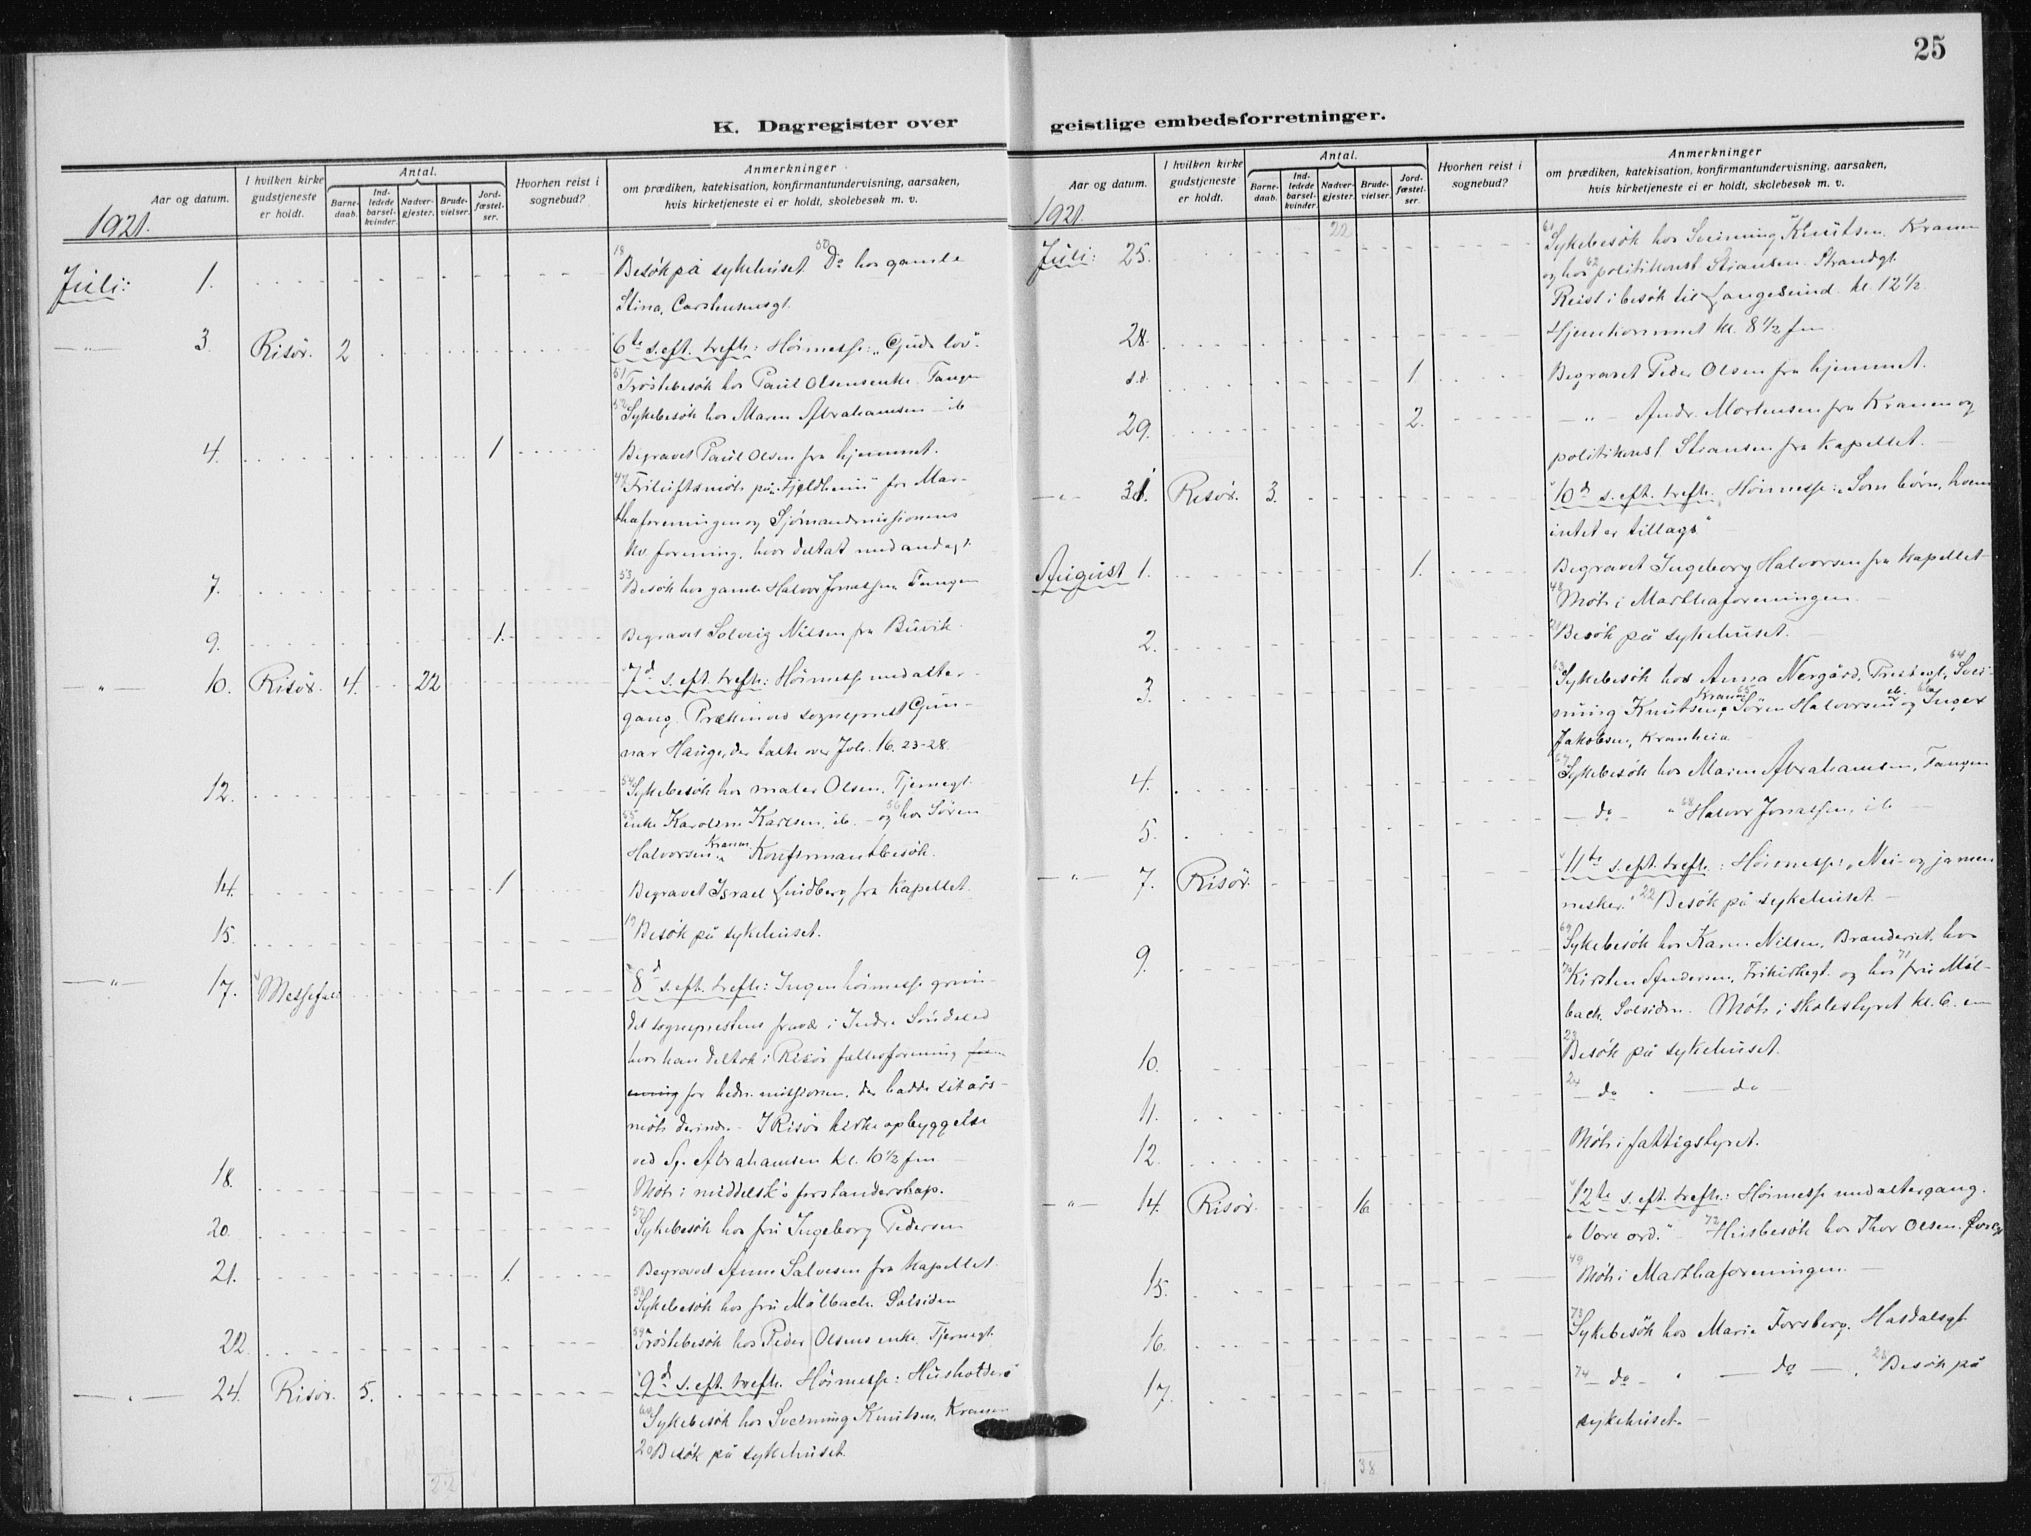 25
K. Dagregister over
geistlige embedsforretninger.
Aar og datum.
I hvilken kirke gudstjeneste er holdt.
Antal.
Barnedaab.
Indledede barselkvinder.
Nadvergjester.
Brudevielser.
Jordfæstelser.
Hvorhen reist i sognebud?
Anmerkninger
om prædiken, katekisation, konfirmantundervisning, aarsaken,
hvis kirketjeneste ei er holdt, skolebesøk m. v.
1921.
Juli: 1. 18 Besøk på sykehuset 50 Do hos gamle
Stina, Carstensensgt.
—"— 3. Risør. 2 6te s. eft. trefh: Høimesse: „Guds lov".
51 Trøstebesøk hos Paul Olsens enke. Tangen
52 Sykebesøk hos Maren Abrahamsen – ib
4. 1 Begravet Paul Olsen fra hjemmet.
47 Friluftsmøte på „Fjeldheim" for Mar-
thaforeningen og Sjømandsmissionens
kv forening, hvor deltat med andagt.
7. 53 Besøk hos gamle Halvor Jonassen Tangen
9. 1. Begravet Solveig Nilsen fra Buvik.
—"— 10. Risör. 4. 22 7d s. eft. trefh: Høimesse med alter-
gang. Præken ved sogneprest Gun-
nar Hauge, der talte over Joh. 16. 23-28.
12. 54 Sykebesøk hos maler Olsen, Tjernegt.
55 enke Karoline Karlsen, ib. – 56 og hos Sören
Halvorsen, Kranen Konfirmantbesøk.
14. 1 Begravet Israel Lindberg fra Kapellet.
15. 19 Besøk på sykehuset.
—"— 17. Messefald 8d s. eft. trefh: Ingen høimesse grun-
det sogneprestens fravær i Indre Söndeled
hvor han deltok i Risør fællesforening
for hedn. missionen, der hadde sit års-
møte derinde. – I Risör kirke opbyggelse
ved Abrahamsen kl. 10½ fm
18. Møte i middelsk's forstanderskap.
20. 57 Sykebesøk hos fru Ingeborg Pedersen
21. 1. Begravet Anne Salvesen fra Kapellet.
58 Sykebesøk hos fru Målbach. Solsiden
22. 59 Trøstebesøk hos Peder Olsens enke. Tjernegt.
—"— 24. Risør. 5. 9d s. eft. trefh. Høimesse: Husholdere
60 Sykebesøk hos Sveinung Knutsen, Kranen
20 Besøk på sykehuset.
22
Aar og datum.
I hvilken kirke gudstjeneste er holdt.
Antal.
Barnedaab.
Indledede barselkvinder.
Nadvergjester.
Brudevielser.
Jordfæstelser.
Hvorhen reist i sognebud?
Anmerkninger
om prædiken, katekisation, konfirmantundervisning, aarsaken,
hvis kirketjeneste ei er holdt, skolebesøk m. v.
1921.
22
Juli: 25. 61 Sykebesøk hos Sveinung Knutsen, Kranen
og hos 62 politikonst. Stiansen. Strandgt.
Reist i besøk til Langesund kl. 12½
28. Hjemkommet kl. 8½ fm.
s.d. 1. Begravet Peder Olsen fra hjemmet.
29. 2. —"— Andr. Mortensen fra Kranen og
politikonst. Stiansen fra Kapellet.
—"— 31. Risør. 3. 10d s. eft. trefh. Høimesse: „Som børn, hvem
intet er tillagt"
August 1. 1. Begravet Ingeborg Halvorsen fra Kapellet
48 Møte i Marthaforeningen.
2. 21 Besøk på sykehuset.
3. 63 Sykebesøk hos Anna Nergård, Prestegt, 64 Svei-
nung Knutsen, Kranen 65 Sören Halvorsen ib. og 66 Inger
Jakobsen, Kranheia
4. 67 Sykebesøk hos Maren Abrahamsen, Tangen
5. — do — " 68 Halvor Jonassen, ib —
—"— 7. Risör. 11te s. eft. trefh.: Høimesse: „Nei- og jamen-
nesker." 22 Besøk på sykehuset. –
9. 69 Sykebesøk hos Karen Nilsen, Branderiet, hos
70 Kirsten Andersen, Frikirkegt. og hos 71 fru Mål-
bach, Solsiden. Møte i skolestyret kl. 6. em
10. 23 Besøk på sykehuset.
11. 24 — do " — do —
12. Møte i fattigstyret.
—"— 14. Risør. 16 12te s. eft. trefh.: Høimesse med altergang.
„Vore ord." – 72 Husbesøk hos Thor Olsen.
15. 49 Møte i Marthaforeningen. –
16. 73 Sykebesøk hos Marie Forsberg, Hasdalsgt
17. 74 — do — " — do —, 25 Besøk på
sykehuset. –
38